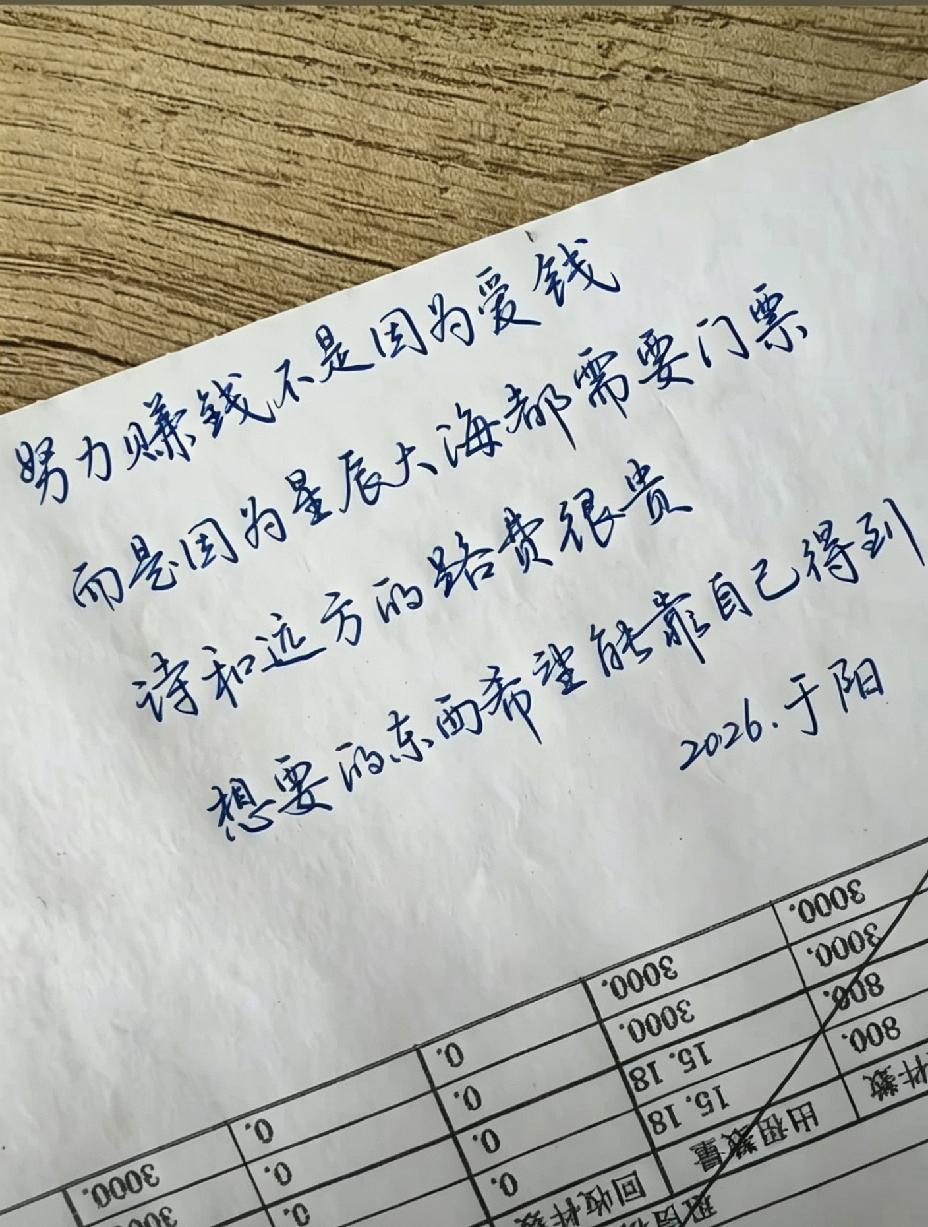 努力赚钱不是因为爱钱
而是因为星辰大海都需要门票
诗和远方的路费很贵
想要的东西希望能靠自己得到
2026.于阳
3000.
3000. 3000.
0. 3000. 800.
0. 15.18 800.
3000. 0. 0. 15.18 件数
0. 0. 回收件数 出租数量